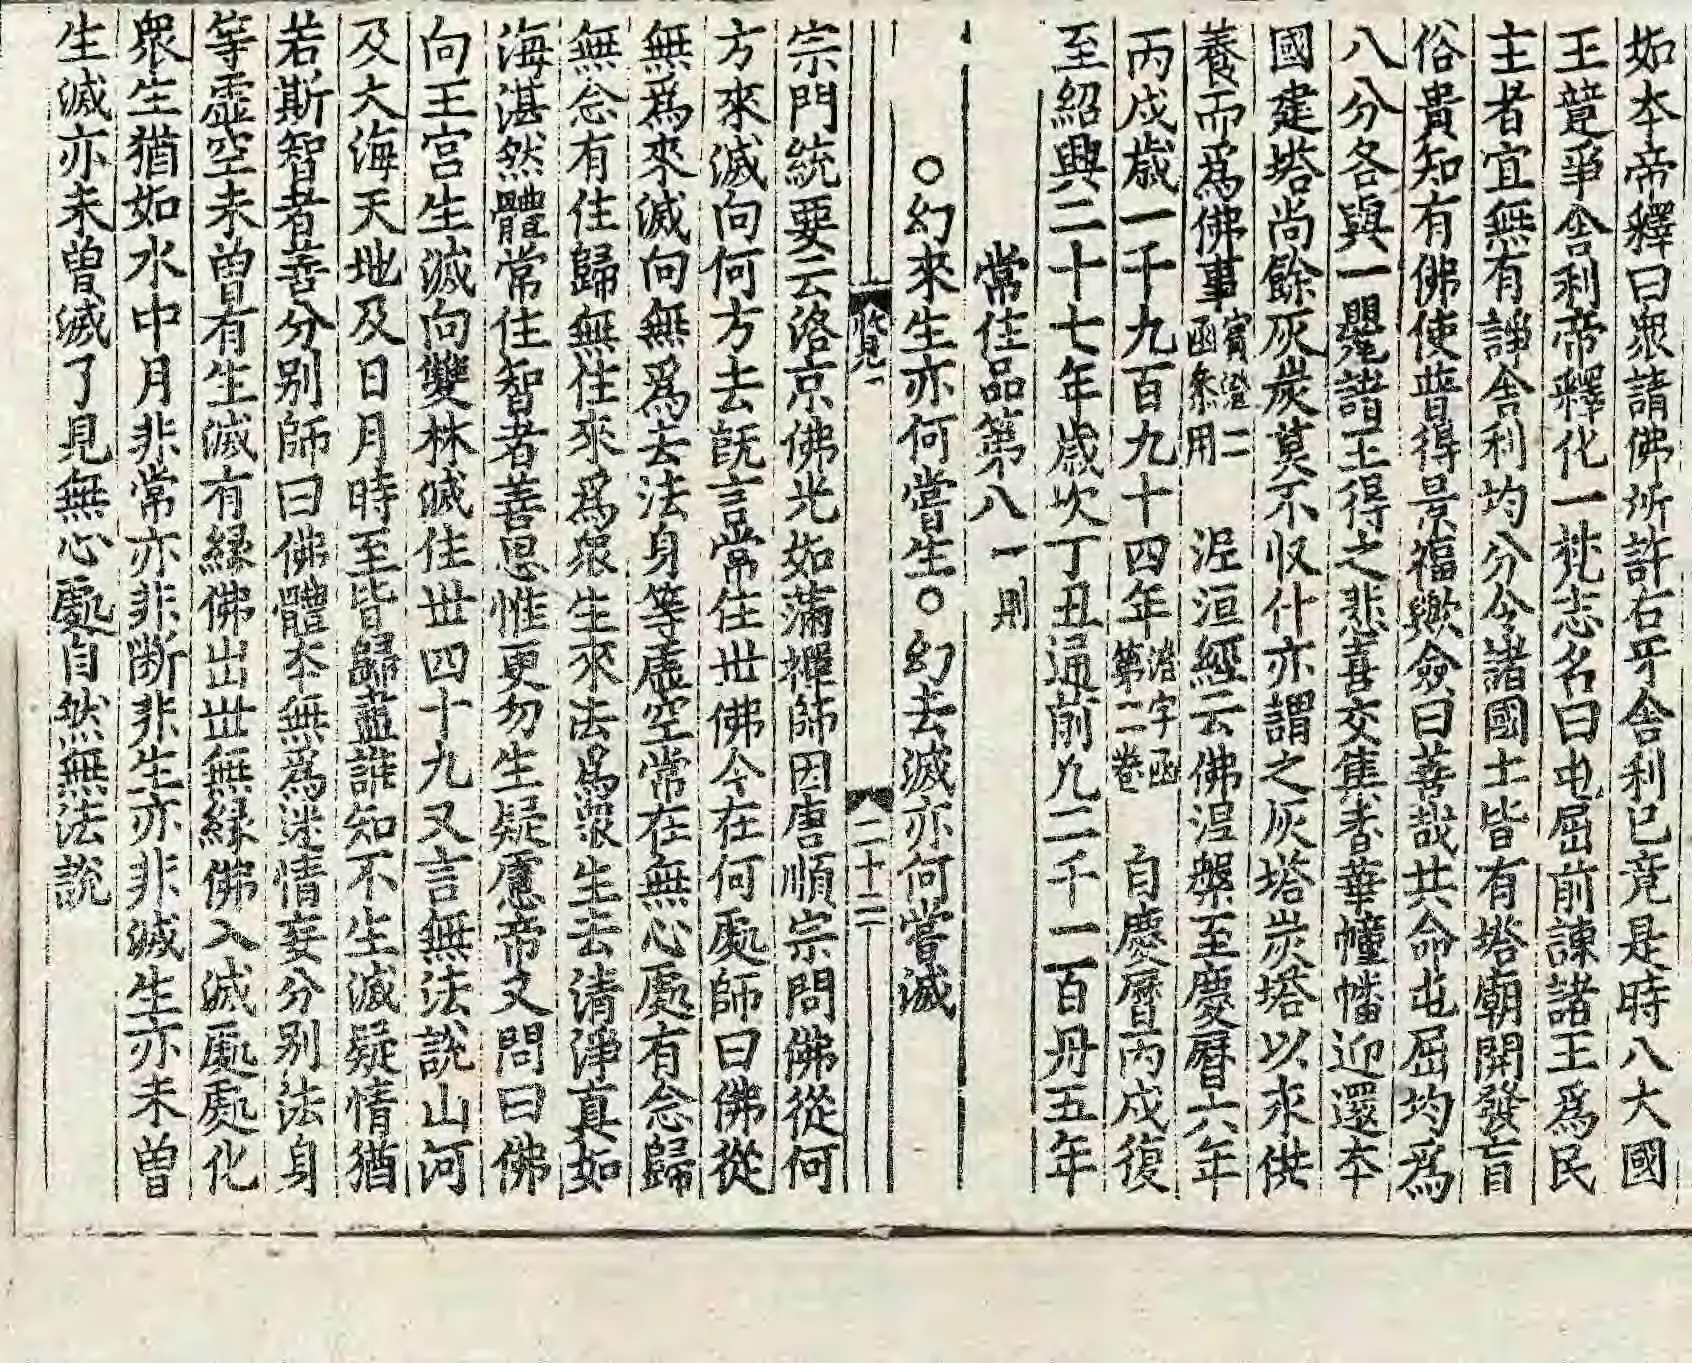 如本帝釋曰眾請佛所許右牙舍利已竟是時八大國
王競爭舍利帝釋化一梵志名曰屯屈前諫諸王為民
主者宜無有諍舍利均分令諸國土皆有塔廟開發盲
俗貴知有佛使普得景福歟僉曰善哉共命屯屈均為
八分各與一甖諸王得之悲喜交集香華幢幡迎還本
國建塔尚餘灰炭莫不収什亦謂之灰塔炭塔以來供
養而為佛事賓澄二函叅用 涅洹經云佛涅槃至慶曆六年
丙戌歲一千九百九十四年澹字函第二卷 自慶曆丙戌復
至紹興二十七年歲次丁丑通前凡二千一百丹五年
常住品第八 一則
○幻來生亦何嘗生○幻去滅亦何嘗滅
覽一 二十二
宗門統要云洛京佛光如滿禪師因唐順宗問佛從何
方來滅向何方去既言常住世佛今在何處師曰佛從
無為來滅向無為去法身等虛空常在無心處有念歸
無念有住歸無住來為衆生來去為衆生去清淨真如
海湛然體常住智者善思惟更勿生疑慮帝又問曰佛
向王宮生滅向雙林滅住世四十九又言無法說山河
及大海天地及日月時至皆歸盡誰知不生滅疑情猶
若斯智者善分別師曰佛體本無為迷情妄分別法身
等虛空未曾有生滅有緣佛出世無緣佛入滅處處化
衆生猶如水中月非常亦非斷非生亦非滅生亦未曾
生滅亦未曾滅了見無心處自然無法說